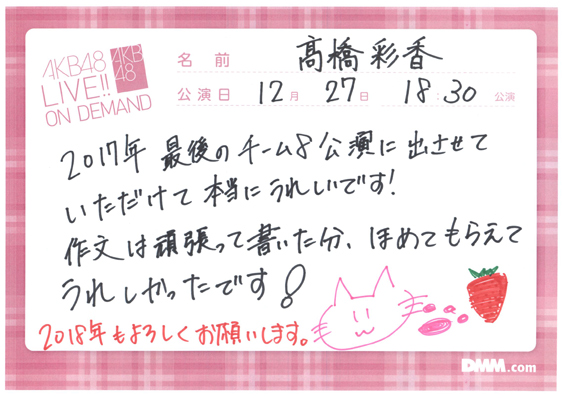 AKB48
LIVE!!
ON DEMAND
AKB
48
名前 髙橋彩香
公演日 12月 27日 18:30 公演
2017年 最後のチーム8公演に出させて
いただけて本当にうれしいです!
作文は頑張って書いた分、ほめてもらえて
うれしかったです!
2018年もよろしくお願いします。
DMM.com